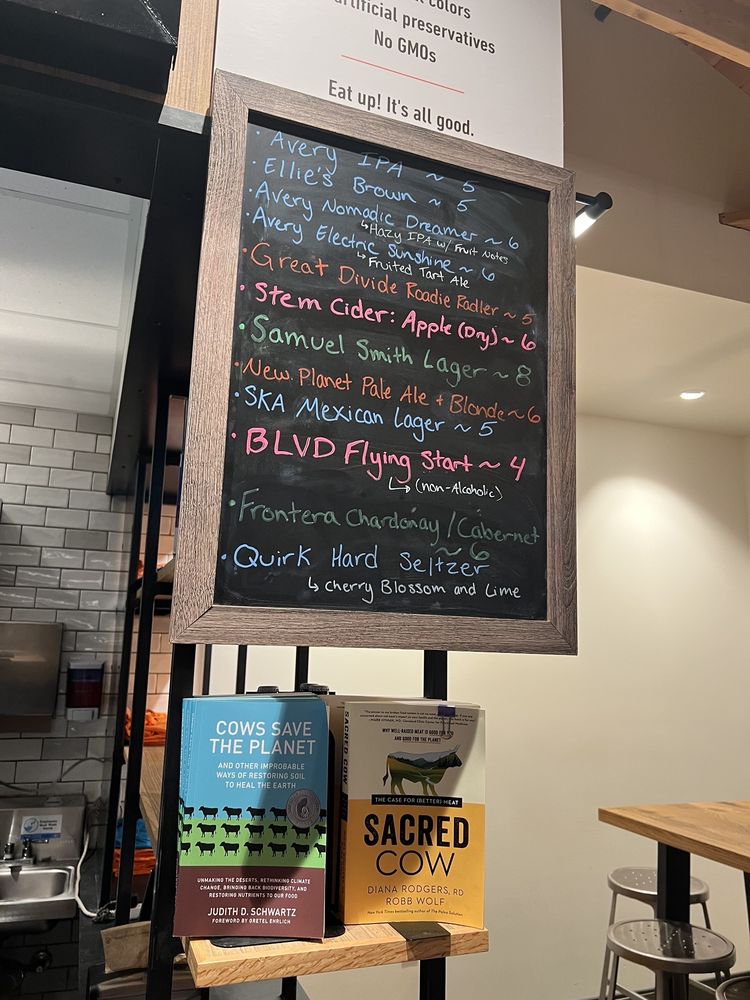 colors
artificial preservatives
No GMOs
Eat up! It's all good.
· Avery IPA ~ 5
· Ellie's Brown ~ 5
· Avery Nomadic Dreamer ~ 6
↳Hazy IPA w/ Fruit Notes
· Avery Electric Sunshine ~ 6
↳ Fruited Tart Ale
· Great Divide Roadie Radler ~ 5
· Stem Cider: Apple (Dry) ~ 6
· Samuel Smith Lager ~ 8
· New Planet Pale Ale + Blonde ~ 6
· SKA Mexican Lager ~ 5
· BLVD Flying Start ~ 4
↳ (non-Alcoholic)
· Frontera Chardonay / Cabernet
~ 6
· Quirk Hard Seltzer
↳ cherry Blossom and Lime
COWS SAVE
THE PLANET
AND OTHER IMPROBABLE
WAYS OF RESTORING SOIL
TO HEAL THE EARTH
UNMAKING THE DESERTS, RETHINKING CLIMATE
CHANGE, BRINGING BACK BIODIVERSITY, AND
RESTORING NUTRIENTS TO OUR FOOD
JUDITH D. SCHWARTZ
FOREWORD BY GRETEL EHRLICH
SACRED COW
WHY WELL-RAISED MEAT IS GOOD FOR YOU
AND GOOD FOR THE PLANET
THE CASE FOR (BETTER) MEAT
SACRED
COW
DIANA RODGERS, RD
ROBB WOLF
New York Times bestselling author of The Paleo Solution